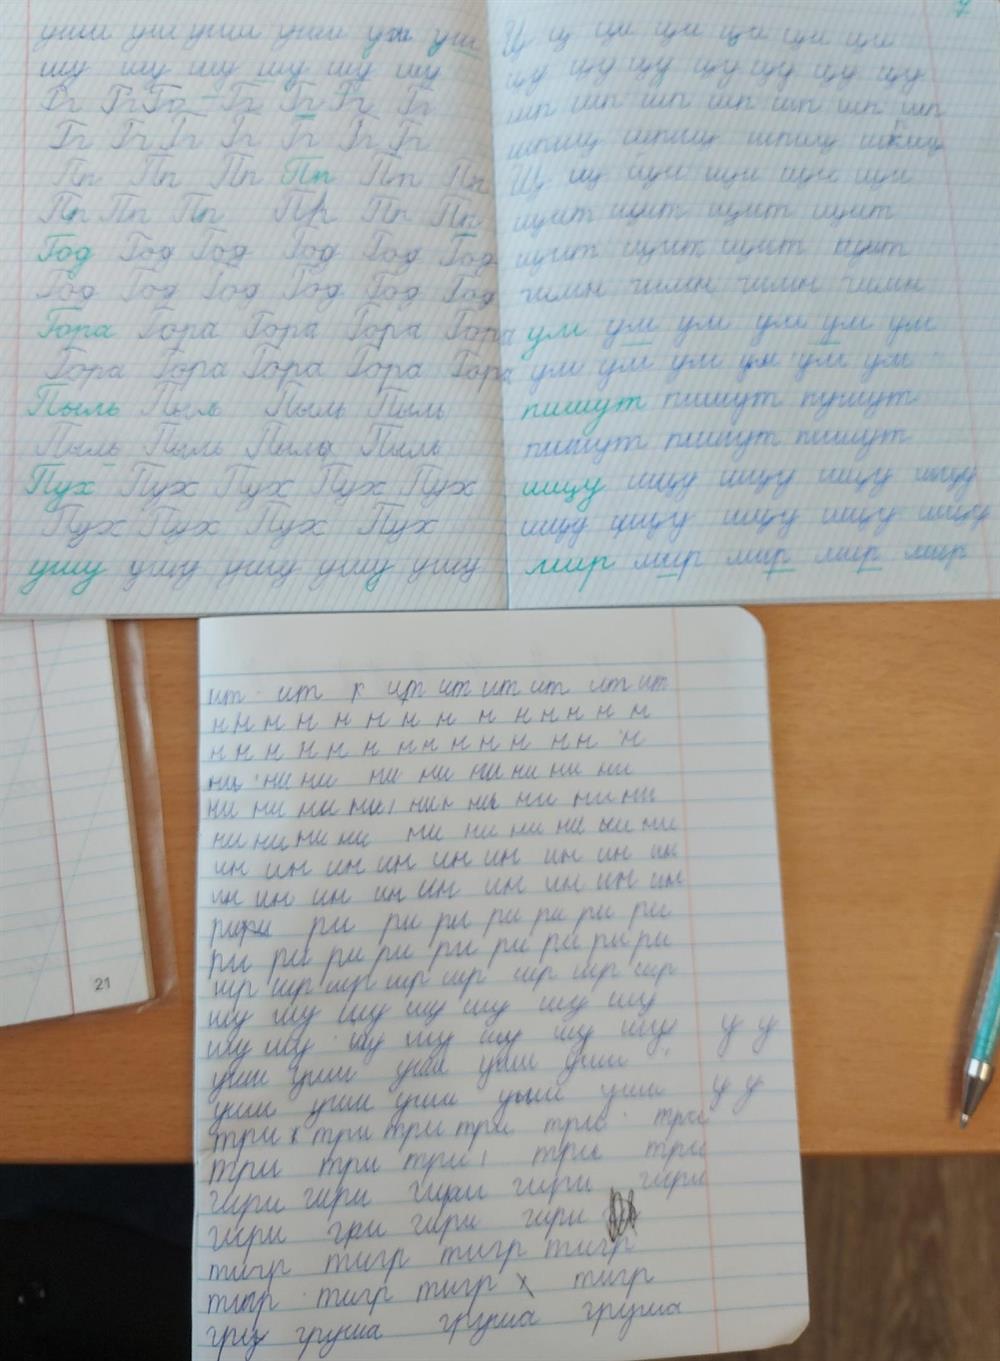 уши уши уши уши уши уши
шу шу шу шу шу шу
Гг Гг Гг Гг Гг Гг Гг
Гг Гг Гг Гг Гг Гг Гг
Пп Пп Пп Пп Пп Пп
Пп Пп Пп Пп Пп Пп
Год Год Год Год Год Год
Год Год Год Год Год Год
Гора Гора Гора Гора Гора
Гора Гора Гора Гора Гора
Пыль Пыль Пыль Пыль
Пыль Пыль Пыль Пыль
Пух Пух Пух Пух Пух
Пух Пух Пух Пух
ушу ушу ушу ушу ушу
Ц ц ци ци ци ци ци
цу цу цу цу цу цу цу
шп шп шп шп шп шп шп
шпищ шпищ шпищ
Щ щ щи щи щи щи
щит щит щит щит
щит щит щит щит
гимн гимн гимн гимн
ум ум ум ум ум ум
ум ум ум ум ум ум
пишут пишут пишут
пишут пишут пишут
ищу ищу ищу ищу ищу
ищу ищу ищу ищу ищу
мир мир мир мир мир
ит ит х ит ит ит ит ит ит
н н н н н н н н н н н н н н
н н н н н н н н н н н н н н
ни ни ни ни ни ни ни ни ни
ни ни ни ни ни ни ни ни ни
ни ни ни ни ни ни ни ни ни ни
ин ин ин ин ин ин ин ин ин
ин ин ин ин ин ин ин ин ин
ри ри ри ри ри ри ри ри
ри ри ри ри ри ри ри ри ри
шр шр шр шр шр шр шр шр
шу шу шу шу шу шу шу
шу шу шу шу шу шу шу у у
уши уши уши уши уши
уши уши уши уши уши у у
три х три три три три три
три три три три три
гири гири гири гири гири
гири гири гири гири
тигр тигр тигр тигр
тигр тигр тигр х тигр
груша груша груша
21